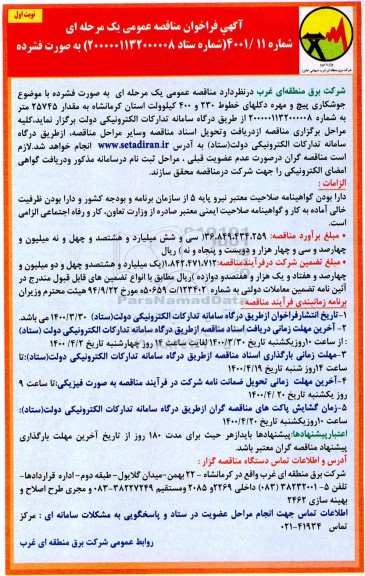 نوبت اول
آگهي فراخوان مناقصه عمومی یک مرحله ای
شماره ۱۱ /۴۰۰۱(شماره ستاد ۲۰۰۰۰۰۱۱۳۲۰۰۰۰۰۸) به صورت فشرده
شرکت برق منطقه‌ای غرب درنظردارد مناقصه عمومی یک مرحله ای به صورت فشرده با موضوع
جوشکاری پیچ و مهره دکلهای خطوط ۲۳۰ و ۴۰۰ کیلوولت استان کرمانشاه به مقدار ۲۵۷۴۵ متر
به شماره ۲۰۰۰۰۰۱۱۳۲۰۰۰۰۰۸ از طریق درگاه سامانه تدارکات الکترونیکی دولت برگزار نماید،کلیه
مراحل برگزاری مناقصه ازدریافت وتحویل اسناد مناقصه وسایر مراحل مناقصه، ازطریق درگاه
سامانه تدارکات الکترونیکی دولت(ستاد) به آدرس www.setadiran.ir انجام خواهد شد.لازم
است مناقصه گران درصورت عدم عضویت قبلی ، مراحل ثبت نام درسامانه مذکور ودریافت گواهی
امضای الکترونیکی را جهت شرکت درمناقصه محقق سازند.
الزامات :
دارا بودن گواهینامه صلاحیت معتبر نیرو پایه ۵ از سازمان برنامه و بودجه کشور و دارا بودن ظرفیت
خالی آماده به کار و گواهینامه صلاحیت ایمنی معتبر صادره از وزارت تعاون، کار و رفاه اجتماعی الزامی
است.
• مبلغ برآورد مناقصه: ۳۶،۸۴۹،۴۳۴،۲۵۹(سی و شش میلیارد و هشتصد و چهل و نه میلیون و
چهارصد و سی و چهار هزار و دویست و پنجاه و نه ) ریال
• مبلغ تضمین شرکت درفرآیندمناقصه:۱،۸۴۲،۴۷۱،۷۱۲(یک میلیارد و هشتصدو چهل و دو میلیون و
چهارصد و هفتاد و یک هزار و هفتصدو دوازده )ریال مطابق با انواع تضمین های قابل قبول مندرج در
آئین نامه تضمین معاملات دولتی به شماره ۱۲۳۴۰۲/ت۵۰۶۵۹ه مورخ ۹۴/۹/۲۲ هیئت محترم وزیران
برنامه زمانبندی فرآیند مناقصه :
۱-تاریخ انتشارفراخوان ازطریق درگاه سامانه تدارکات الکترونیکی دولت(ستاد) ۱۴۰۰/۳/۳۰ می باشد.
۲- آخرین مهلت زمانی دریافت اسناد مناقصه ازطریق درگاه سامانه تدارکات الکترونیکی دولت (ستاد)
: از ساعت ۱۰روزیکشنبه تاریخ ۱۴۰۰/۳/۳۰ لغایت ساعت ۱۴ روز چهارشنبه تاریخ ۱۴۰۰/۴/۲
۳-مهلت زمانی بارگذاری اسناد مناقصه ازطریق درگاه سامانه تدارکات الکترونیکی دولت(ستاد):تا
ساعت ۱۴روز شنبه تاریخ ۱۴۰۰/۴/۱۹
۴-آخرین مهلت زمانی تحویل ضمانت نامه شرکت در فرآیند مناقصه به صورت فیزیکی:تا ساعت ۹
روز یکشنبه تاریخ ۱۴۰۰/۴/۲۰
۵-زمان گشایش پاکت های مناقصه گران ازطریق درگاه سامانه تدارکات الکترونیکی دولت(ستاد):
ساعت ۱۰روزیکشنبه تاریخ ۱۴۰۰/۴/۲۰
اعتبارپیشنهادها:پیشنهادها بایدازهر حیث برای مدت ۱۸۰ روز از تاریخ آخرین مهلت بارگذاری
پیشنهاد مناقصه گران معتبر باشد.
آدرس و اطلاعات تماس دستگاه مناقصه گزار :
شرکت برق منطقه ای غرب واقع در کرمانشاه - ۲۲ بهمن-میدان گلایول- طبقه دوم-اداره قراردادها-
تلفن ۵- ۳۸۲۳۲۰۰۱ (۰۸۳) داخلی ۲۲۶۹و ۲۰۸۵ ومستقیم ۳۸۲۲۷۲۴۹-۰۸۳ و مجری طرح اصلاح و
بهینه سازی ۲۴۶۲
اطلاعات تماس جهت انجام مراحل عضویت در ستاد و پاسخگویی به مشکلات سامانه ای : مرکز
تماس ۴۱۹۳۴-۰۲۱
روابط عمومی شرکت برق منطقه ای غرب